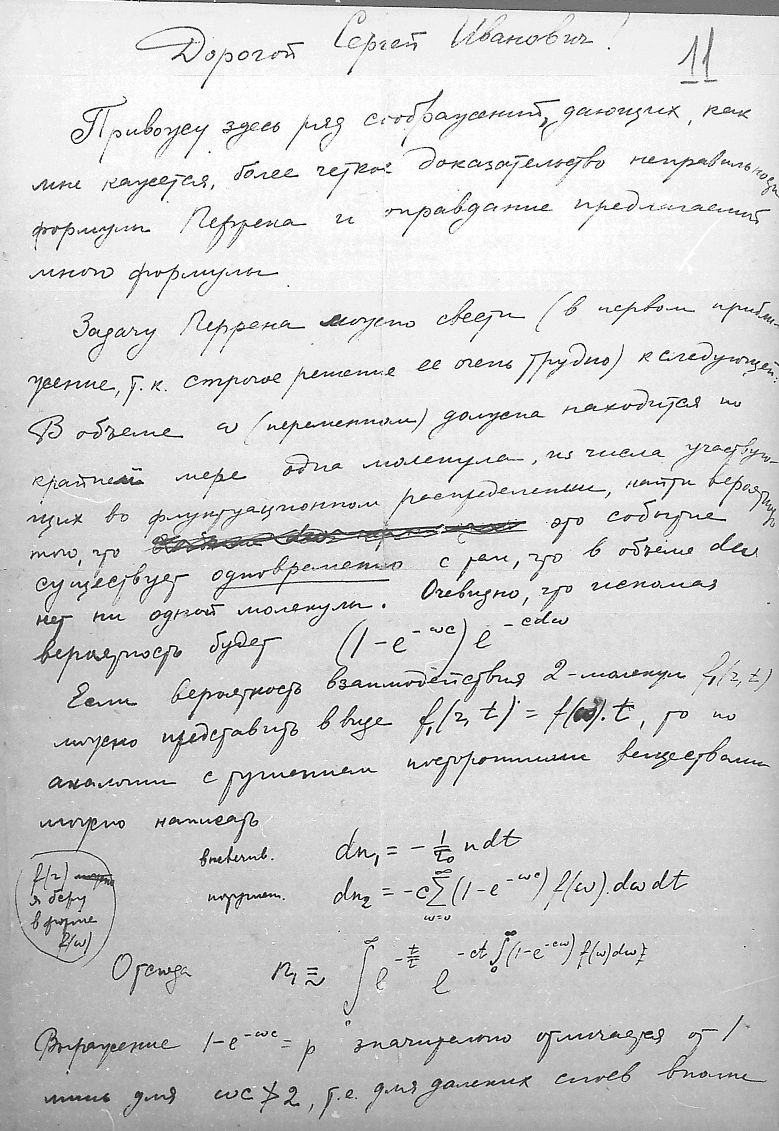 Дорогой Сергей Иванович!
11
Привожу здесь ряд соображений, дающих, как
мне кажется, более четкое доказательство неправильности
формулы Перрена и оправдание предлагаемой
мною формулы
Задачу Перрена можно свести (в первом прибли-
жение, т.к. строгое решение ее очень трудно) к следующей:
В объеме ω (переменном) должна находится по
крайней мере одна молекула, из числа участвую-
щих во флуктуационном распределении, найти вероятность
того, что это событие
существует одновременно с тем, что в объеме dω
нет ни одной молекулы. Очевидно, что искомая
вероятность будет (1-e^{-ωc}) e^{-cdω}
Если вероятность взаимодействия 2-молекул f₁(r,t)
можно представить в виде f₁(r,t) = f(ω)·t, то по
аналогии с тушением посторонними веществами
можно написать
dn₁ = -1/τ₀ n dt
dn₂ = -c ∑_{ω=0}^{∞} (1-e^{-ωc}) f(ω)·dω dt
f(r)
я беру
в форме
f(ω)
Отсюда n₁ ≅ ∫_{0}^{∞} e^{-t/τ} e^{-ct ∫_{0}^{∞} (1-e^{-cω}) f(ω) dω}
Выражение 1-e^{-ωc} = p значительно отличается от 1
лишь для ωc ≯ 2, т.е. для далеких слоев вполне